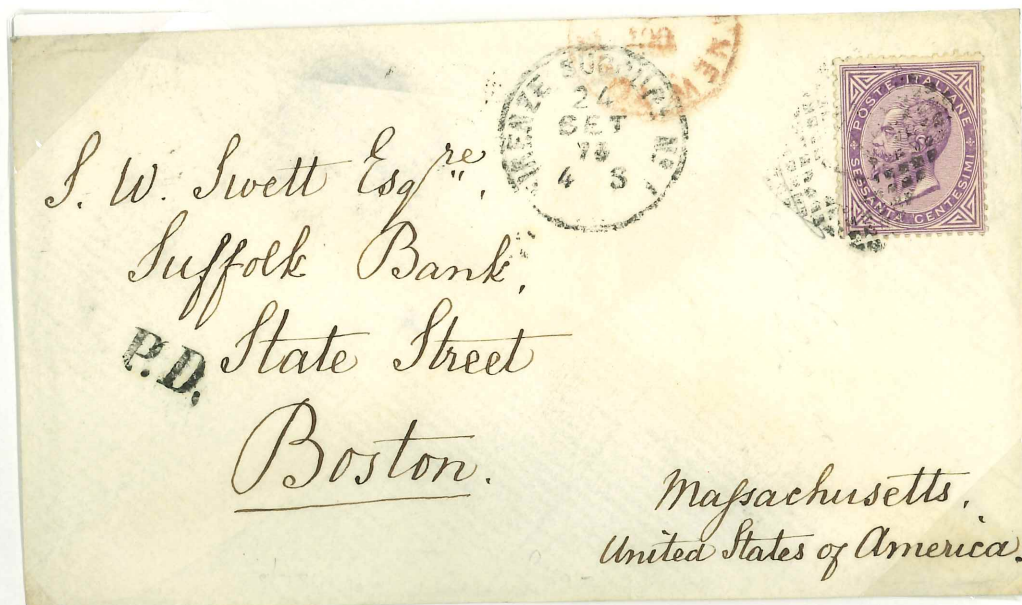 FIRENZE SUCCLE No 1
24
SET
73
4 S
POSTE ITALIANE
SESSANTA CENTESIMI
S. W. Swett Esqre.
Suffolk Bank,
P.D.
State Street
Boston.
Massachusetts,
United States of America.